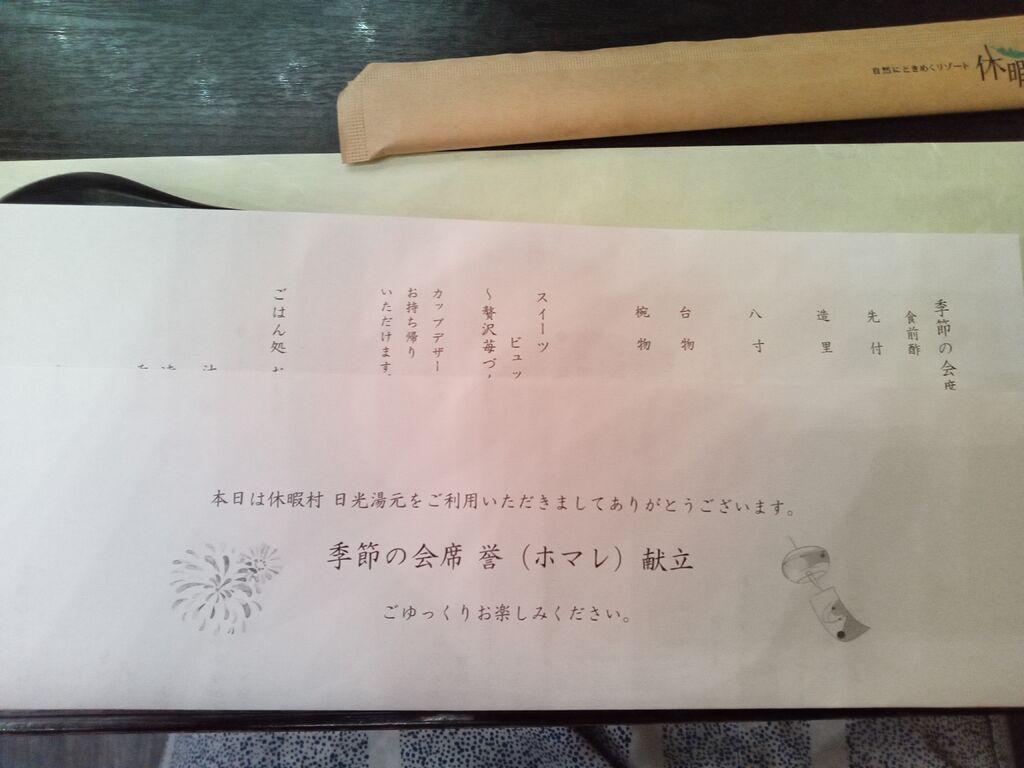 自然にときめくリゾート 休暇
季節の会席
食前酢
先付
造里
八寸
台物
椀物
スイーツ
ビュッ
～贅沢苺づ
カップデザー
お持ち帰り
いただけます
ごはん処
本日は休暇村 日光湯元をご利用いただきましてありがとうございます。
季節の会席 誉（ホマレ）献立
ごゆっくりお楽しみください。